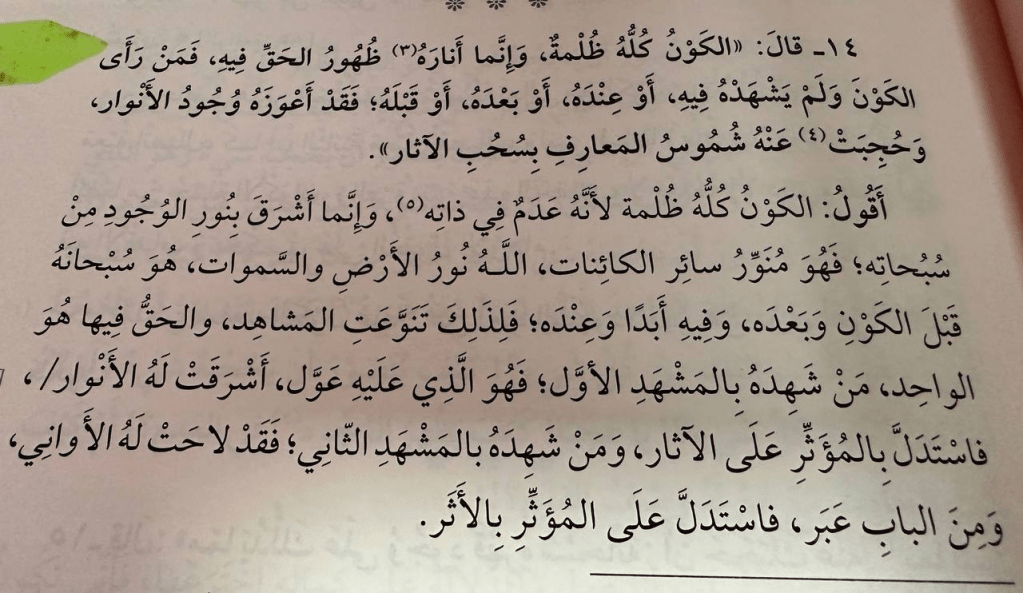 * * *
١٤ـ قالَ: «الكَوْنُ كُلُّهُ ظُلْمةٌ، وَإِنَّما أَنارَهُ(٣) ظُهُورُ الحَقِّ فِيهِ، فَمَنْ رَأَى
الكَوْنَ وَلَمْ يَشْهَدْهُ فِيهِ، أَوْ عِنْدَهُ، أَوْ بَعْدَهُ، أَوْ قَبْلَهُ؛ فَقَدْ أَعْوَزَهُ وُجُودُ الأَنْوار،
وَحُجِبَتْ(٤) عَنْهُ شُمُوسُ المَعارِفِ بِسُحُبِ الآثار».
أَقُولُ: الكَوْنُ كُلُّهُ ظُلْمة لأَنَّهُ عَدَمٌ فِي ذاتِه(٥)، وَإِنَّما أَشْرَقَ بِنُورِ الوُجُودِ مِنْ
سُبُحاتِه؛ فَهُوَ مُنَوِّرُ سائِرِ الكائِنات، اللَّهُ نُورُ الأَرْضِ والسَّموات، هُوَ سُبْحانَهُ
قَبْلَ الكَوْنِ وَبَعْدَه، وَفِيهِ أَبَدًا وَعِنْدَه؛ فَلِذَلِكَ تَنَوَّعَتِ المَشاهِد، والحَقُّ فِيها هُوَ
الواحِد، مَنْ شَهِدَهُ بِالمَشْهَدِ الأوَّل؛ فَهُوَ الَّذِي عَلَيْهِ عَوَّل، أَشْرَقَتْ لَهُ الأَنْوار/،
فاسْتَدَلَّ بِالمُؤَثِّرِ عَلَى الآثار، وَمَنْ شَهِدَهُ بالمَشْهَدِ الثّانِي؛ فَقَدْ لاحَتْ لَهُ الأَوانِي،
وَمِنَ البابِ عَبَر، فاسْتَدَلَّ عَلَى المُؤَثِّرِ بِالأَثَر.